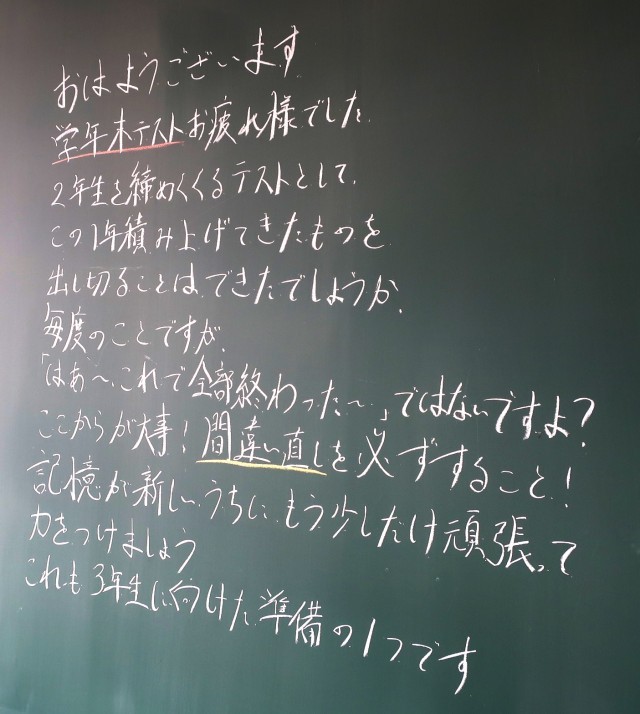 おはようございます
学年末テストお疲れ様でした
2年生を締めくくるテストとして、
この1年積み上げてきたものを
出し切ることはできたでしょうか。
毎度のことですが、
「はあ〜、これで全部終わった〜」ではないですよ?
ここからが大事!間違い直しを必ずすること!
記憶が新しいうちにもう少しだけ頑張って
力をつけましょう
これも3年生に向けた準備の1つです